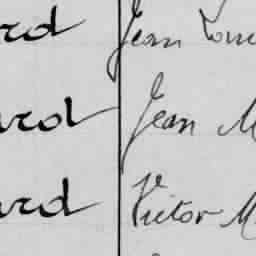 rd Jean Loui
rd Jean M
ard Victor M